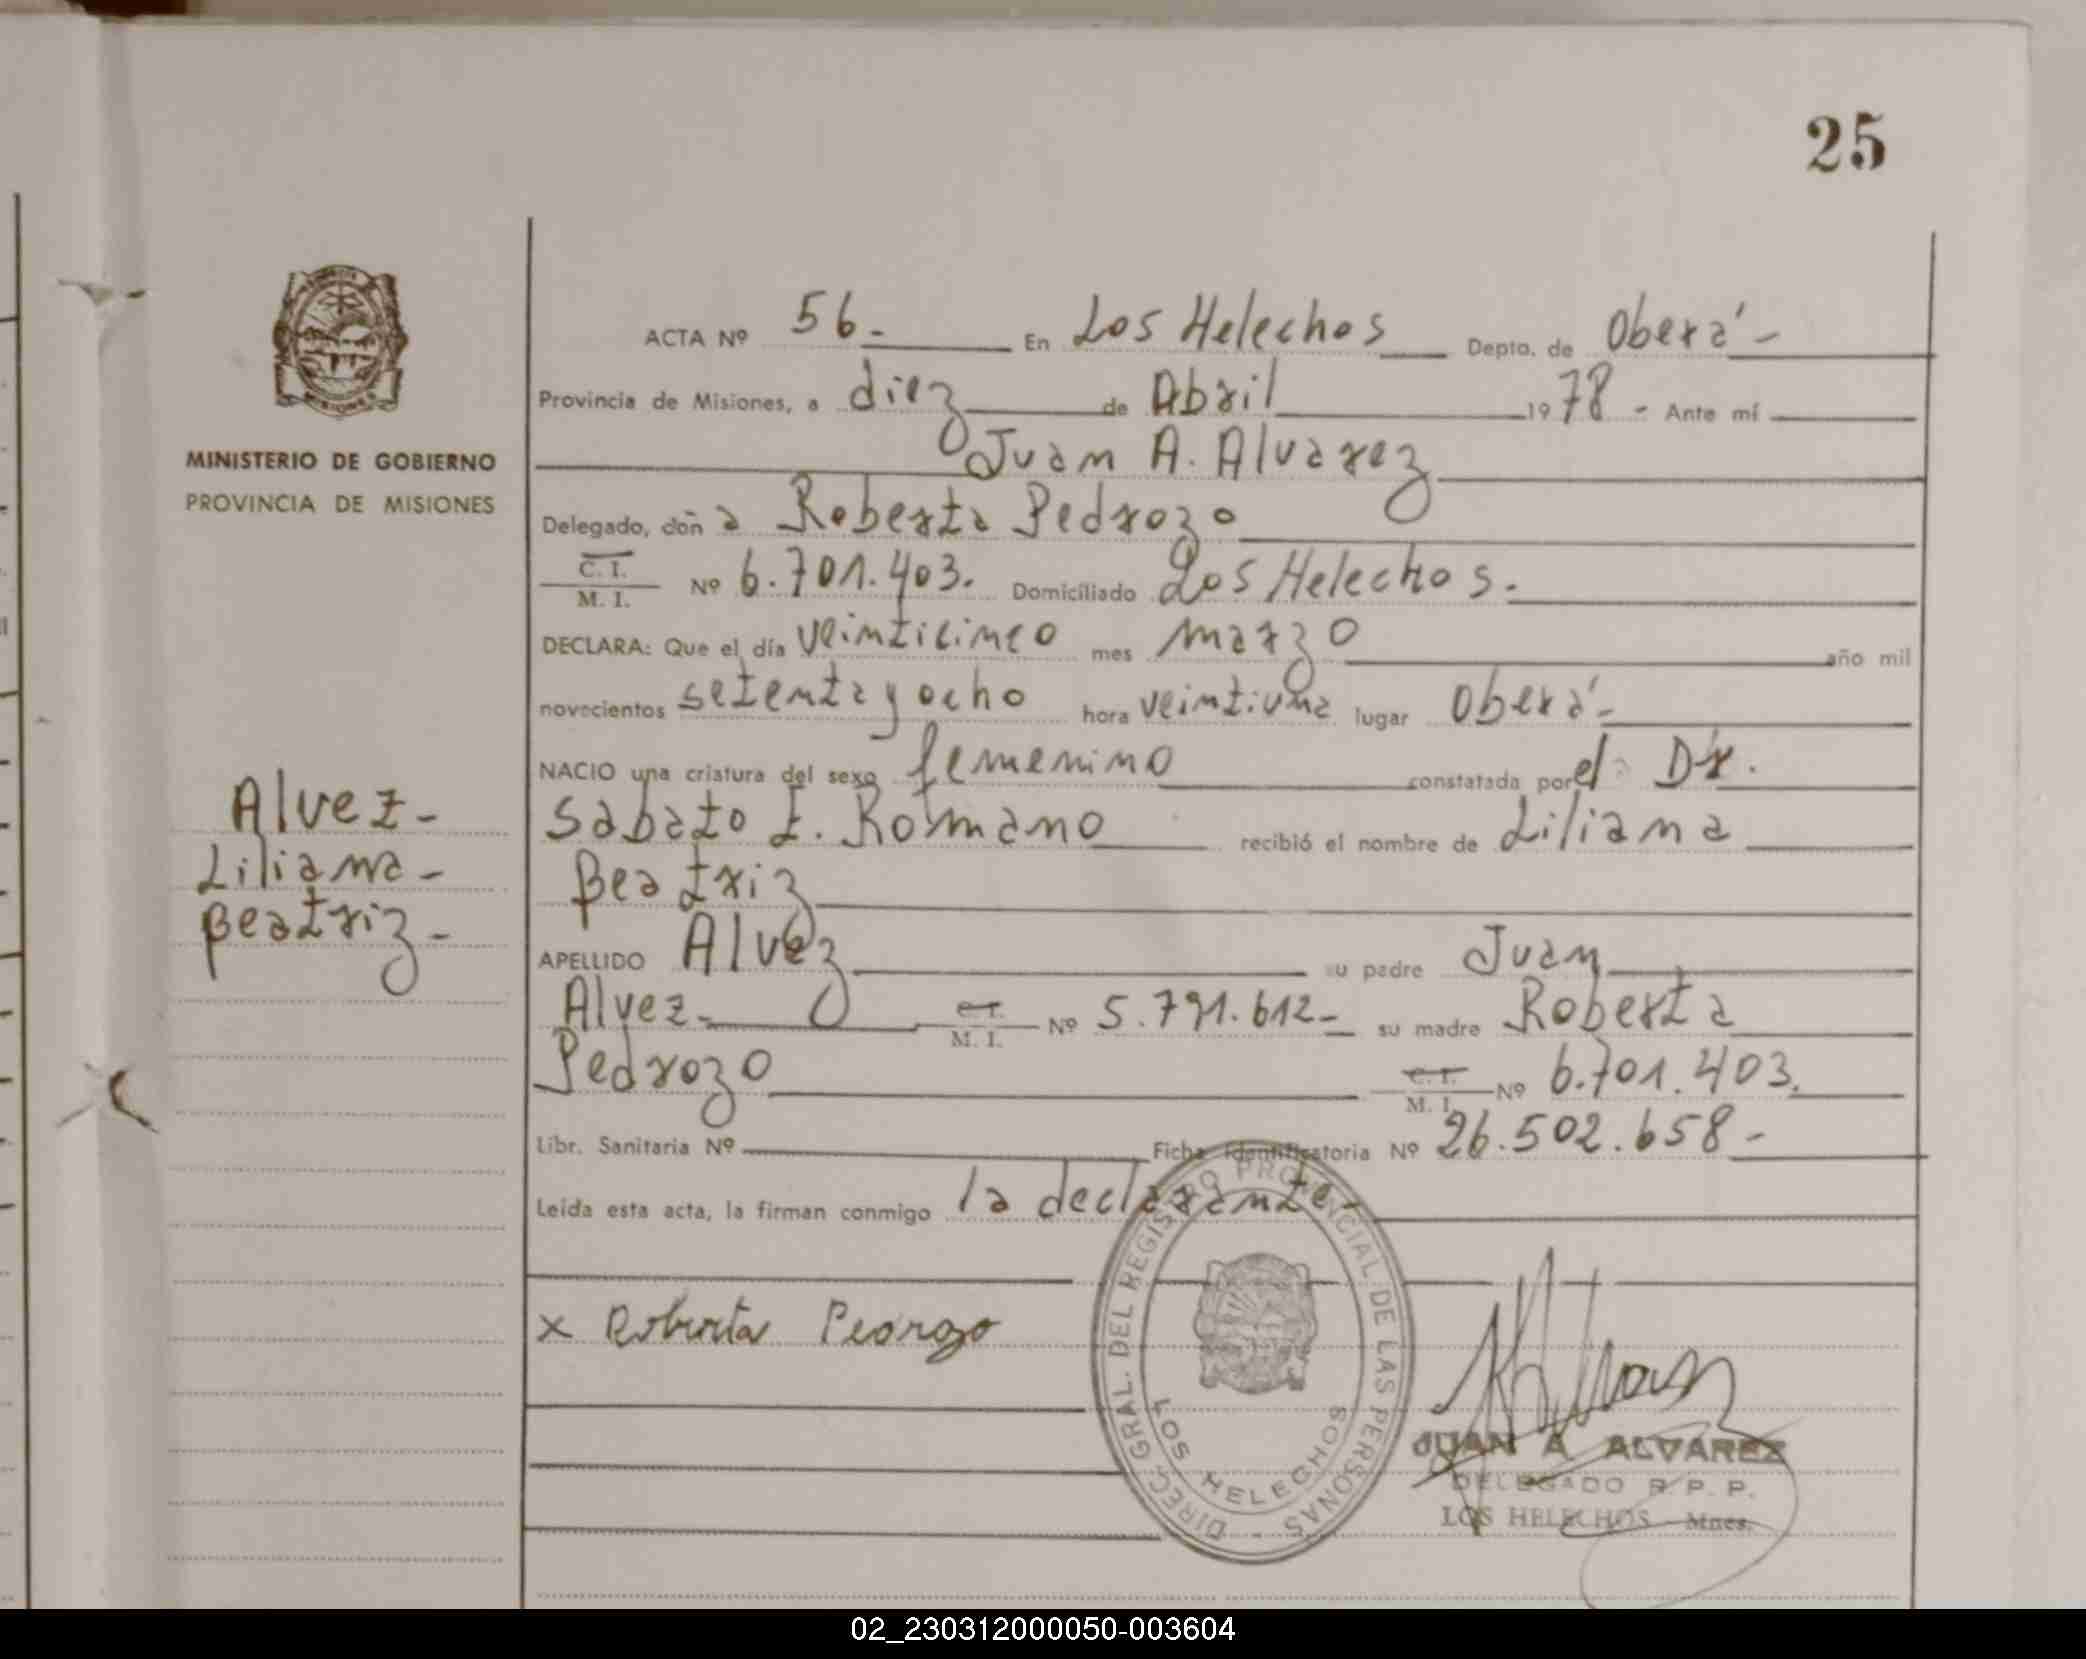 25
MINISTERIO DE GOBIERNO
PROVINCIA DE MISIONES
Alvez-
Liliana-
Beatriz-
ACTA Nº 56- En Los Helechos Depto. de Oberá-
Provincia de Misiones, a diez de Abril 1978- Ante mí
Juan A. Alvarez
Delegado, don a Roberta Pedrozo
C. I.
M. I. Nº 6.701.403. Domiciliado Los Helechos.
DECLARA: Que el día veinticinco mes marzo año mil
novecientos setenta y ocho hora veintiuna lugar Oberá-
NACIO una criatura del sexo femenino constatada por el Dr.
Sabato E. Romano recibió el nombre de Liliana
Beatriz
APELLIDO Alvez su padre Juan
Alvez- C. I. M. I. Nº 5.791.612- su madre Roberta
Pedrozo C. I. M. I. Nº 6.701.403.
Libr. Sanitaria Nº Ficha Identificatoria Nº 26.502.658-
Leída esta acta, la firman conmigo la declarante-
x Roberta Pedrozo
DIREC. GRAL. DEL REGISTRO PROVINCIAL DE LAS PERSONAS -
LOS HELECHOS
JUAN A ALVAREZ
DELEGADO R. P. P.
LOS HELECHOS Mnes.
02_230312000050-003604